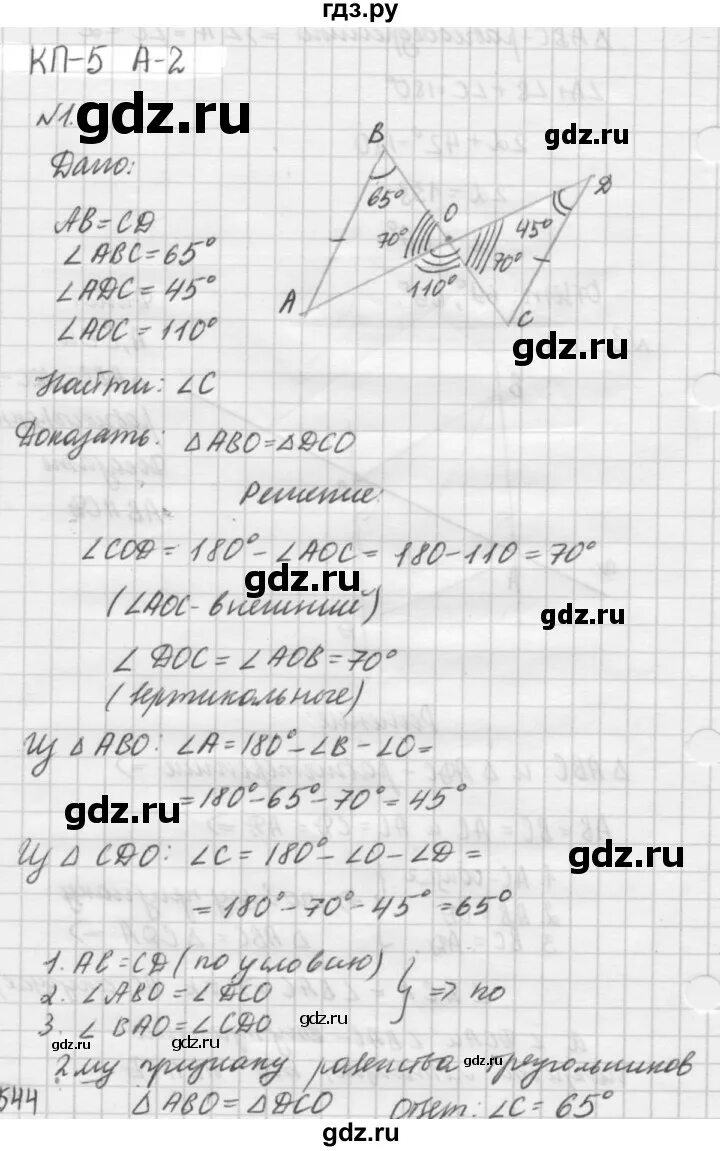 гдз.ру
КП-5 А-2
gdz.ru
gdz.ru
№1.
Дано:
AB=CD
∠ABC=65°
∠ADC=45°
∠AOC=110°
B
65°
O
D
45°
70°
70°
110°
A
C
gdz.ru
Найти: ∠C
Доказать: △ABO=△DCO
Решение:
∠COD=180°-∠AOC=180-110=70°
gdz.ru
(∠AOC-внешний)
gdz.ru
∠DOC=∠AOB=70°
(вертикольные)
Из △ABO: ∠A=180°-∠B-∠O=
=180°-65°-70°=45°
gdz.ru
Из △CDO: ∠C=180°-∠O-∠D=
gdz.ru
=180°-70°-45°=65°
1. AB=CD (по условию)
2. ∠ABO=∠DCO
3. ∠BAO=∠CDO
} => по
gdz.ru
gdz.ru
2му признаку равенства треугольников
544
△ABO=△DCO Ответ: ∠C=65°
gdz.ru